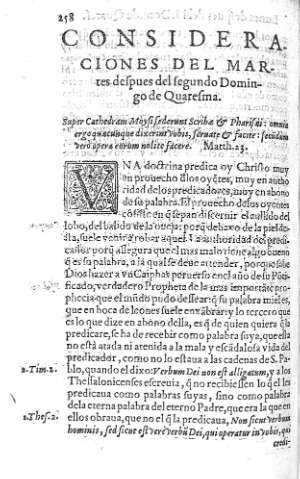 258
CONSIDERA
CIONES DEL MAR-
tes despues del segundo Domin-
go de Quaresma.
Super Cathedram Moysi sederunt Scribæ & Pharisæi: omnia
ergo quæcunque dixerint vobis, seruate & facite: secundum
vero opera eorum nolite facere. Matth. 23.
VNA doctrina predica oy Christo muy
en prouecho d̃los oyẽtes, muy en autho
ridad de los predicadores, muy en abono
de su palabra. El prouecho d̃ los oyentes
cõsiste en q̃ sepan discernir el aullido del
lobo, del balido de la oueja: porq̃ debaxo de la piel de
sta, suele venir a robar aquel. La authoridad del predi-
cador porq̃ assegura que el mas malo tiene algo bueno
q̃ es su palabra, a la qual se deue atender, porque sabe
Dios hazer a vn Caiphas peruerso en el año de su Põti-
ficado, verdadero Propheta de la mas importãte pro-
phecia que el mũdo pudo dessear: q̃ su palabra mieles,
que en boca de leones suele enxãbrar: y lo tercero que
es lo que dize en abono della, es q̃ de quien quiera q̃ la
predicare, se ha de recebir como palabra suya, que esta
no està atada ni atenida a la mala y escãdalosa vida del
predicador, como no lo estaua a las cadenas de S. Pa-
2. Tim. 2. blo, quando el dixo: Verbum Dei non est alligatum, y a los
Thessalonicenses escreuia, q̃ no recibiessen lo q̃ el les
predicaua como palabras suyas, sino como palabra
de la eterna palabra del eterno Padre, que era la que en
2. Thes. 2. ellos obraua, que no el q̃ la predicaua, Non sicut verbum
hominis, sed sicut est verè verbũ Dei, qui operatur in vobis, qui
credi-